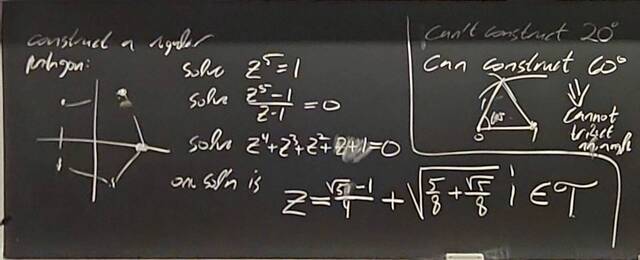 construct a regular
pentagon:
solve z⁵ = 1
solve z⁵-1/z-1 = 0
solve z⁴+z³+z²+z+1=0
one soln is z = √5-1/4 + √(5/8 + √5/8) i ∈
Can't construct 20°
Can construct 60°
0
60°
1
⇓
Cannot
trisect